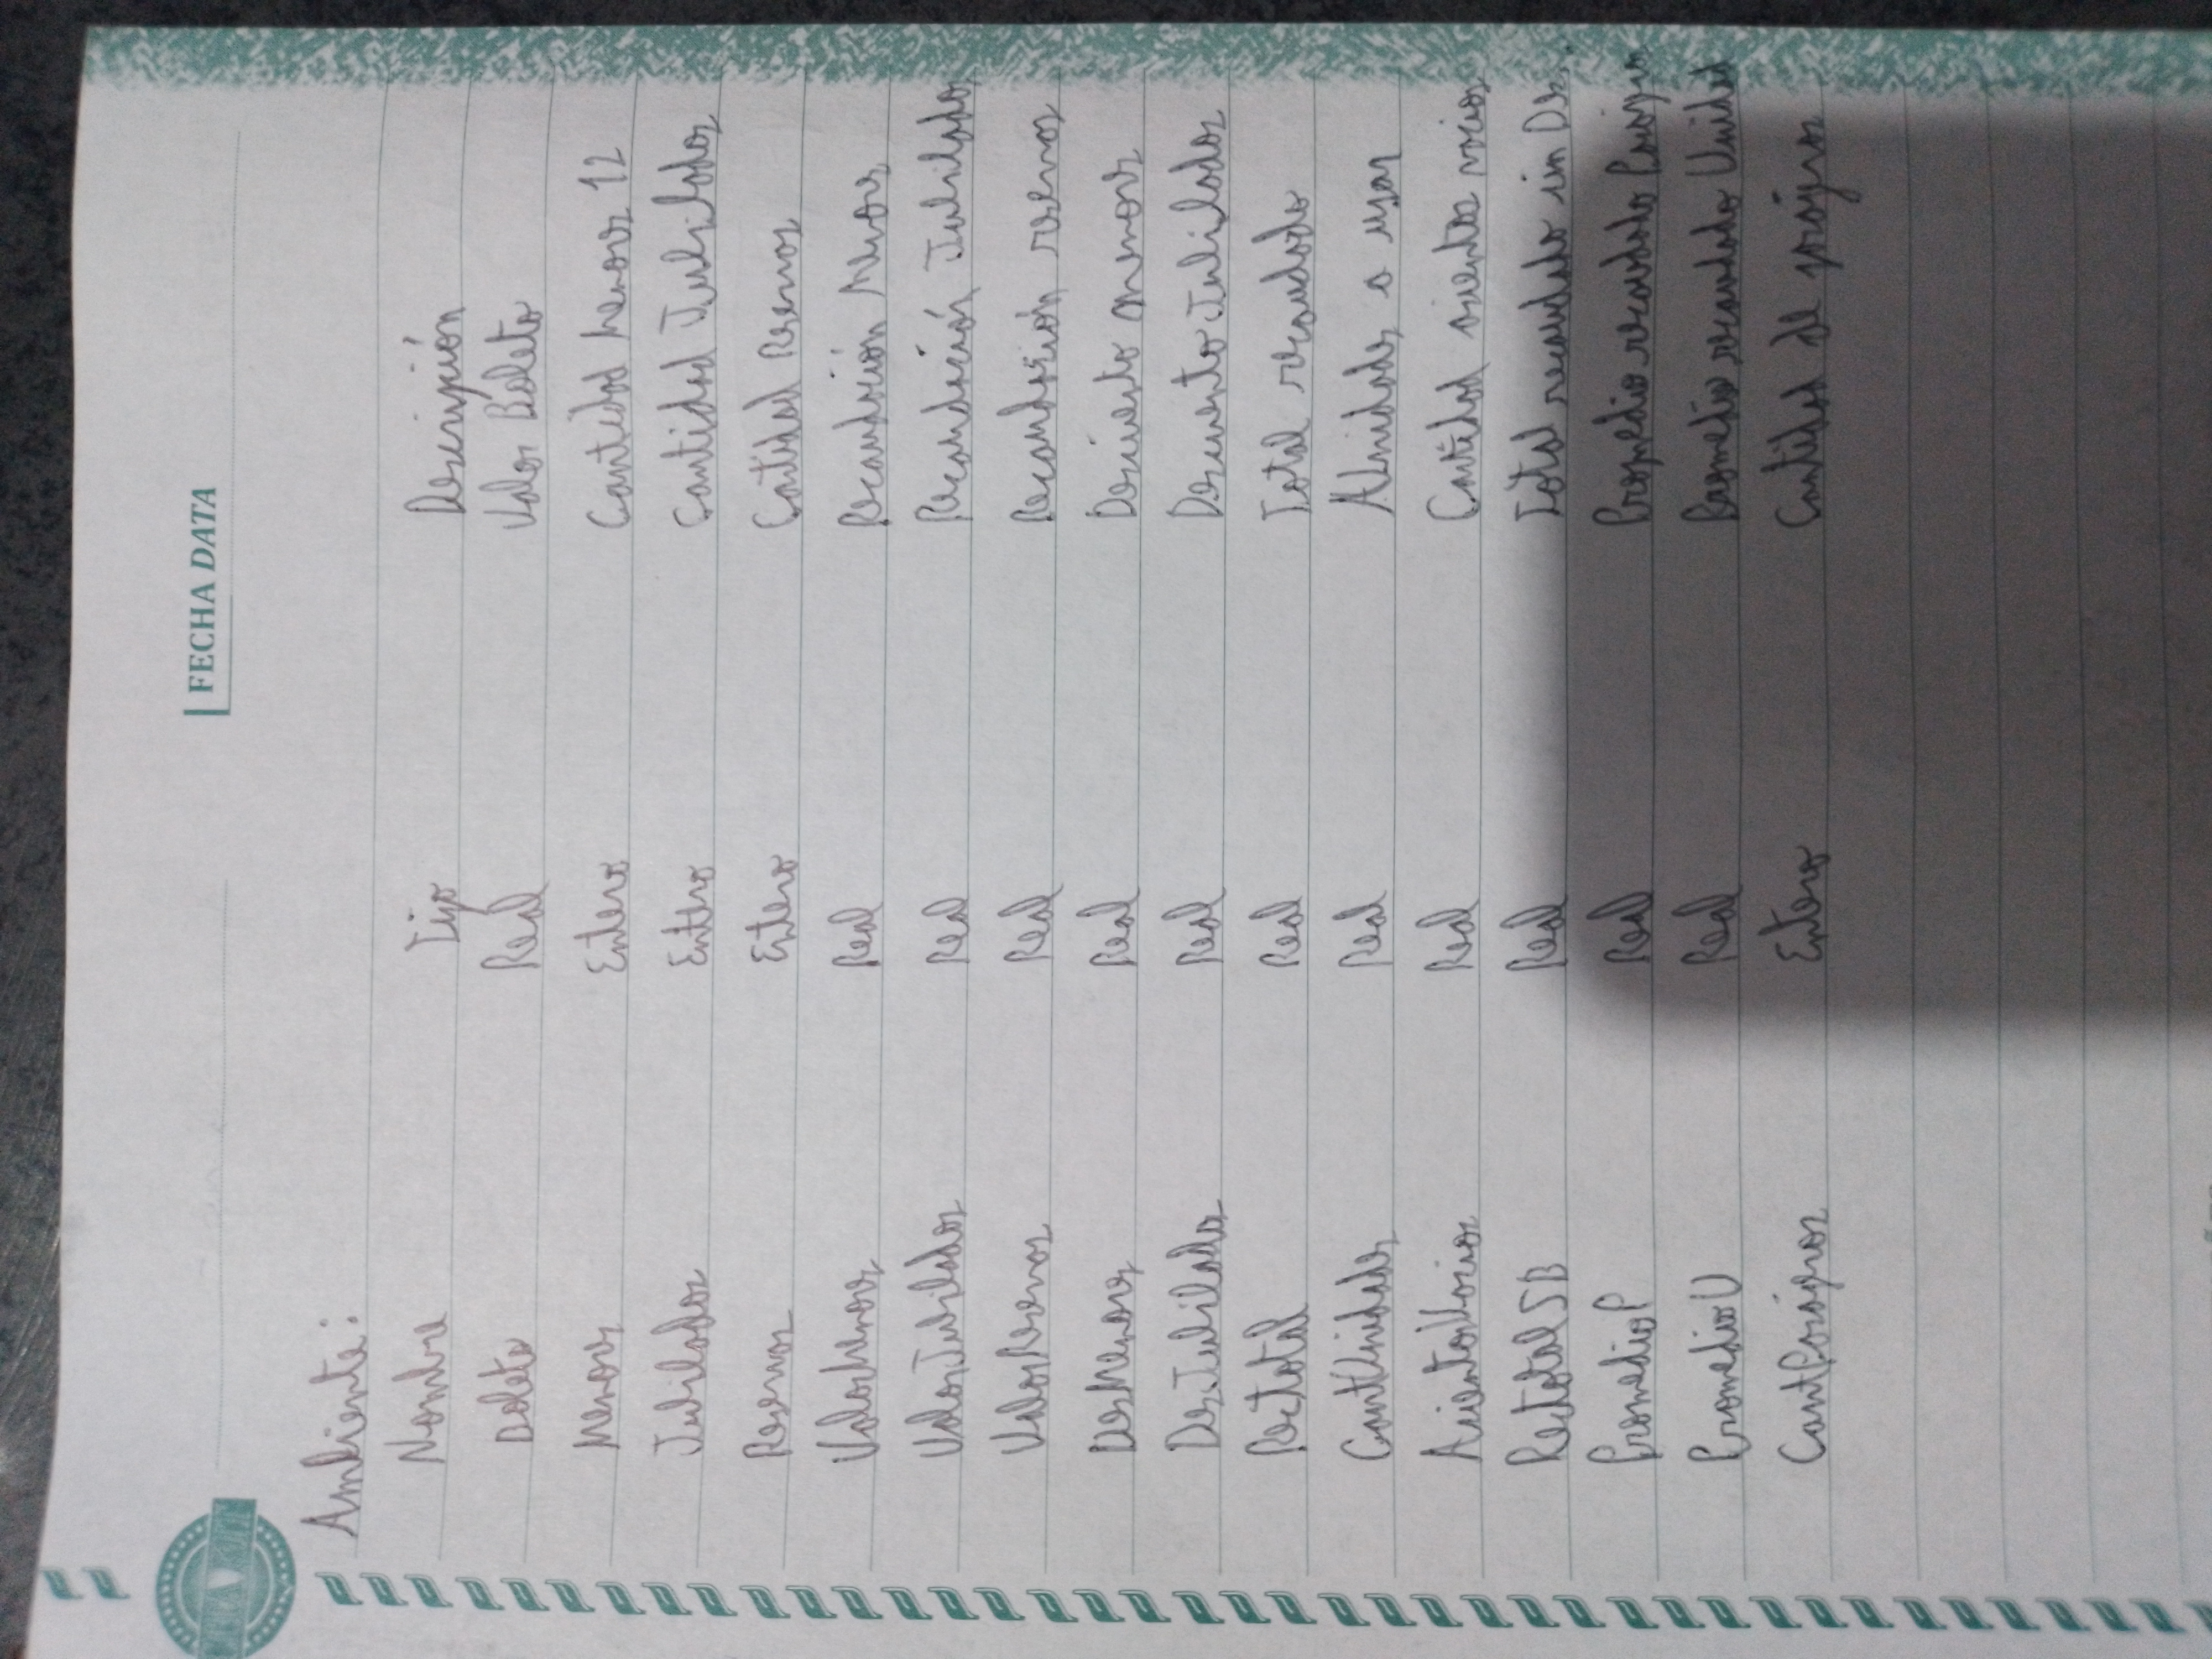 FECHA DATA
Ambiente:
Nombre Tipo Descripción
Boleto Real Valor Boleto
Menores Entero Cantidad Menores 12
Jubilados Entero Cantidad Jubilados
Reservas Entero Cantidad Reservas
ValorMenores Real Recaudación Menores
ValorJubilados Real Recaudación Jubilados
ValorReservas Real Recaudación reservas
DesMenores Real Descuento menores
DesJubilados Real Descuento Jubilados
Rectotal Real Total recaudado
CantUnidades Real Unidades a usar
AsientosVacios Real Cantidad asientos vacios
RectotalSB Real Total recaudado sin Des..
PromedioP Real Promedio recaudado Pasajero
PromedioU Real Promedio recaudado Unidad
CantPasajeros Entero Cantidad de pasajeros